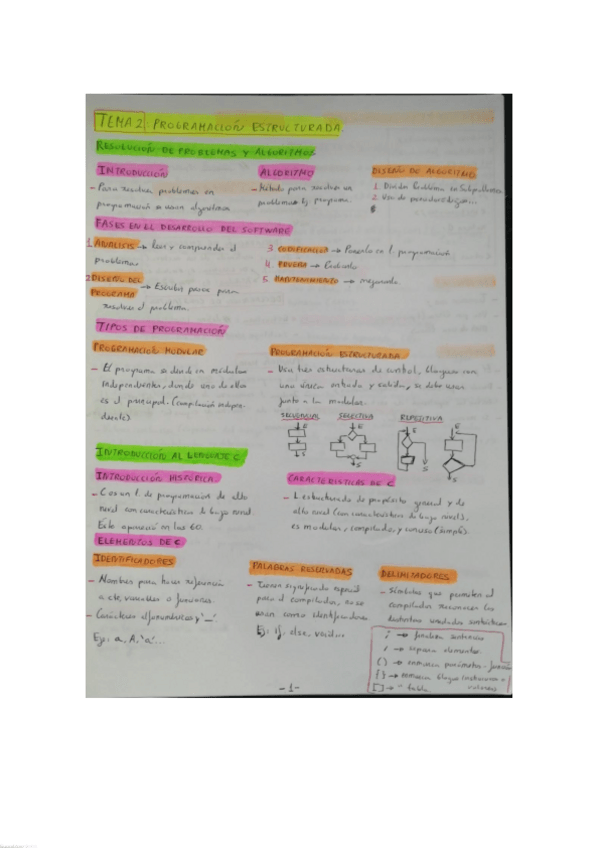 TEMA 2: PROGRAMACIÓN ESTRUCTURADA.
RESOLUCIÓN DE PROBLEMAS Y ALGORITMOS
INTRODUCCIÓN
- Para resolver problemas en
programación se usan algoritmos
ALGORITMO
- Método para resolver un
problema. Ej. programa.
DISEÑO DE ALGORITMO
1. Dividir Problema en Subproblemas
2. Uso de pseudocódigos...
FASES EN EL DESARROLLO DEL SOFTWARE
1. ANÁLISIS → leer y comprender el
problema.
2. DISEÑO DEL
PROGRAMA → Escribir pasos para
resolver el problema.
3. CODIFICACIÓN → Pasarlo a l. programación
4. PRUEBA →
5. MANTENIMIENTO → mejorarlo.
TIPOS DE PROGRAMACIÓN
PROGRAMACIÓN MODULAR
- El programa se divide en módulos
independientes, donde uno de ellos
es el principal. (compilación indepen-
diente).
PROGRAMACIÓN ESTRUCTURADA
- Usa tres estructuras de control, bloques con
una única entrada y salida, se debe usar
junto a la modular.
SECUENCIAL
SELECTIVA
REPETITIVA
E
S
E
S
E
S
E
S
INTRODUCCIÓN AL LENGUAJE C
INTRODUCCIÓN HISTÓRICA
- C es un l. de programación de alto
nivel con características de bajo nivel.
Este apareció en los 60.
CARACTERÍSTICAS DE C
- L estructurado de propósito general y de
alto nivel (con características de bajo nivel),
es modular, compilado, y conciso (simple).
ELEMENTOS DE C
IDENTIFICADORES
- Nombres para hacer referencia
a cte, variables o funciones.
- Carácteres alfanuméricos y '_'.
Ej: a, A, 'a'...
PALABRAS RESERVADAS
- Tienen significado especial
para el compilador, no se
usan como identificadores
Ej: if, else, void...
DELIMITADORES
- Símbolos que permiten al
compilador reconocer las
distintas unidades sintácticas
; → finalizar sentencias
, → separa elementos.
( ) → enmarca parámetros - función
{ } → enmarca bloque instrucciones o
valores
[ ] → " tabla
- 1 -